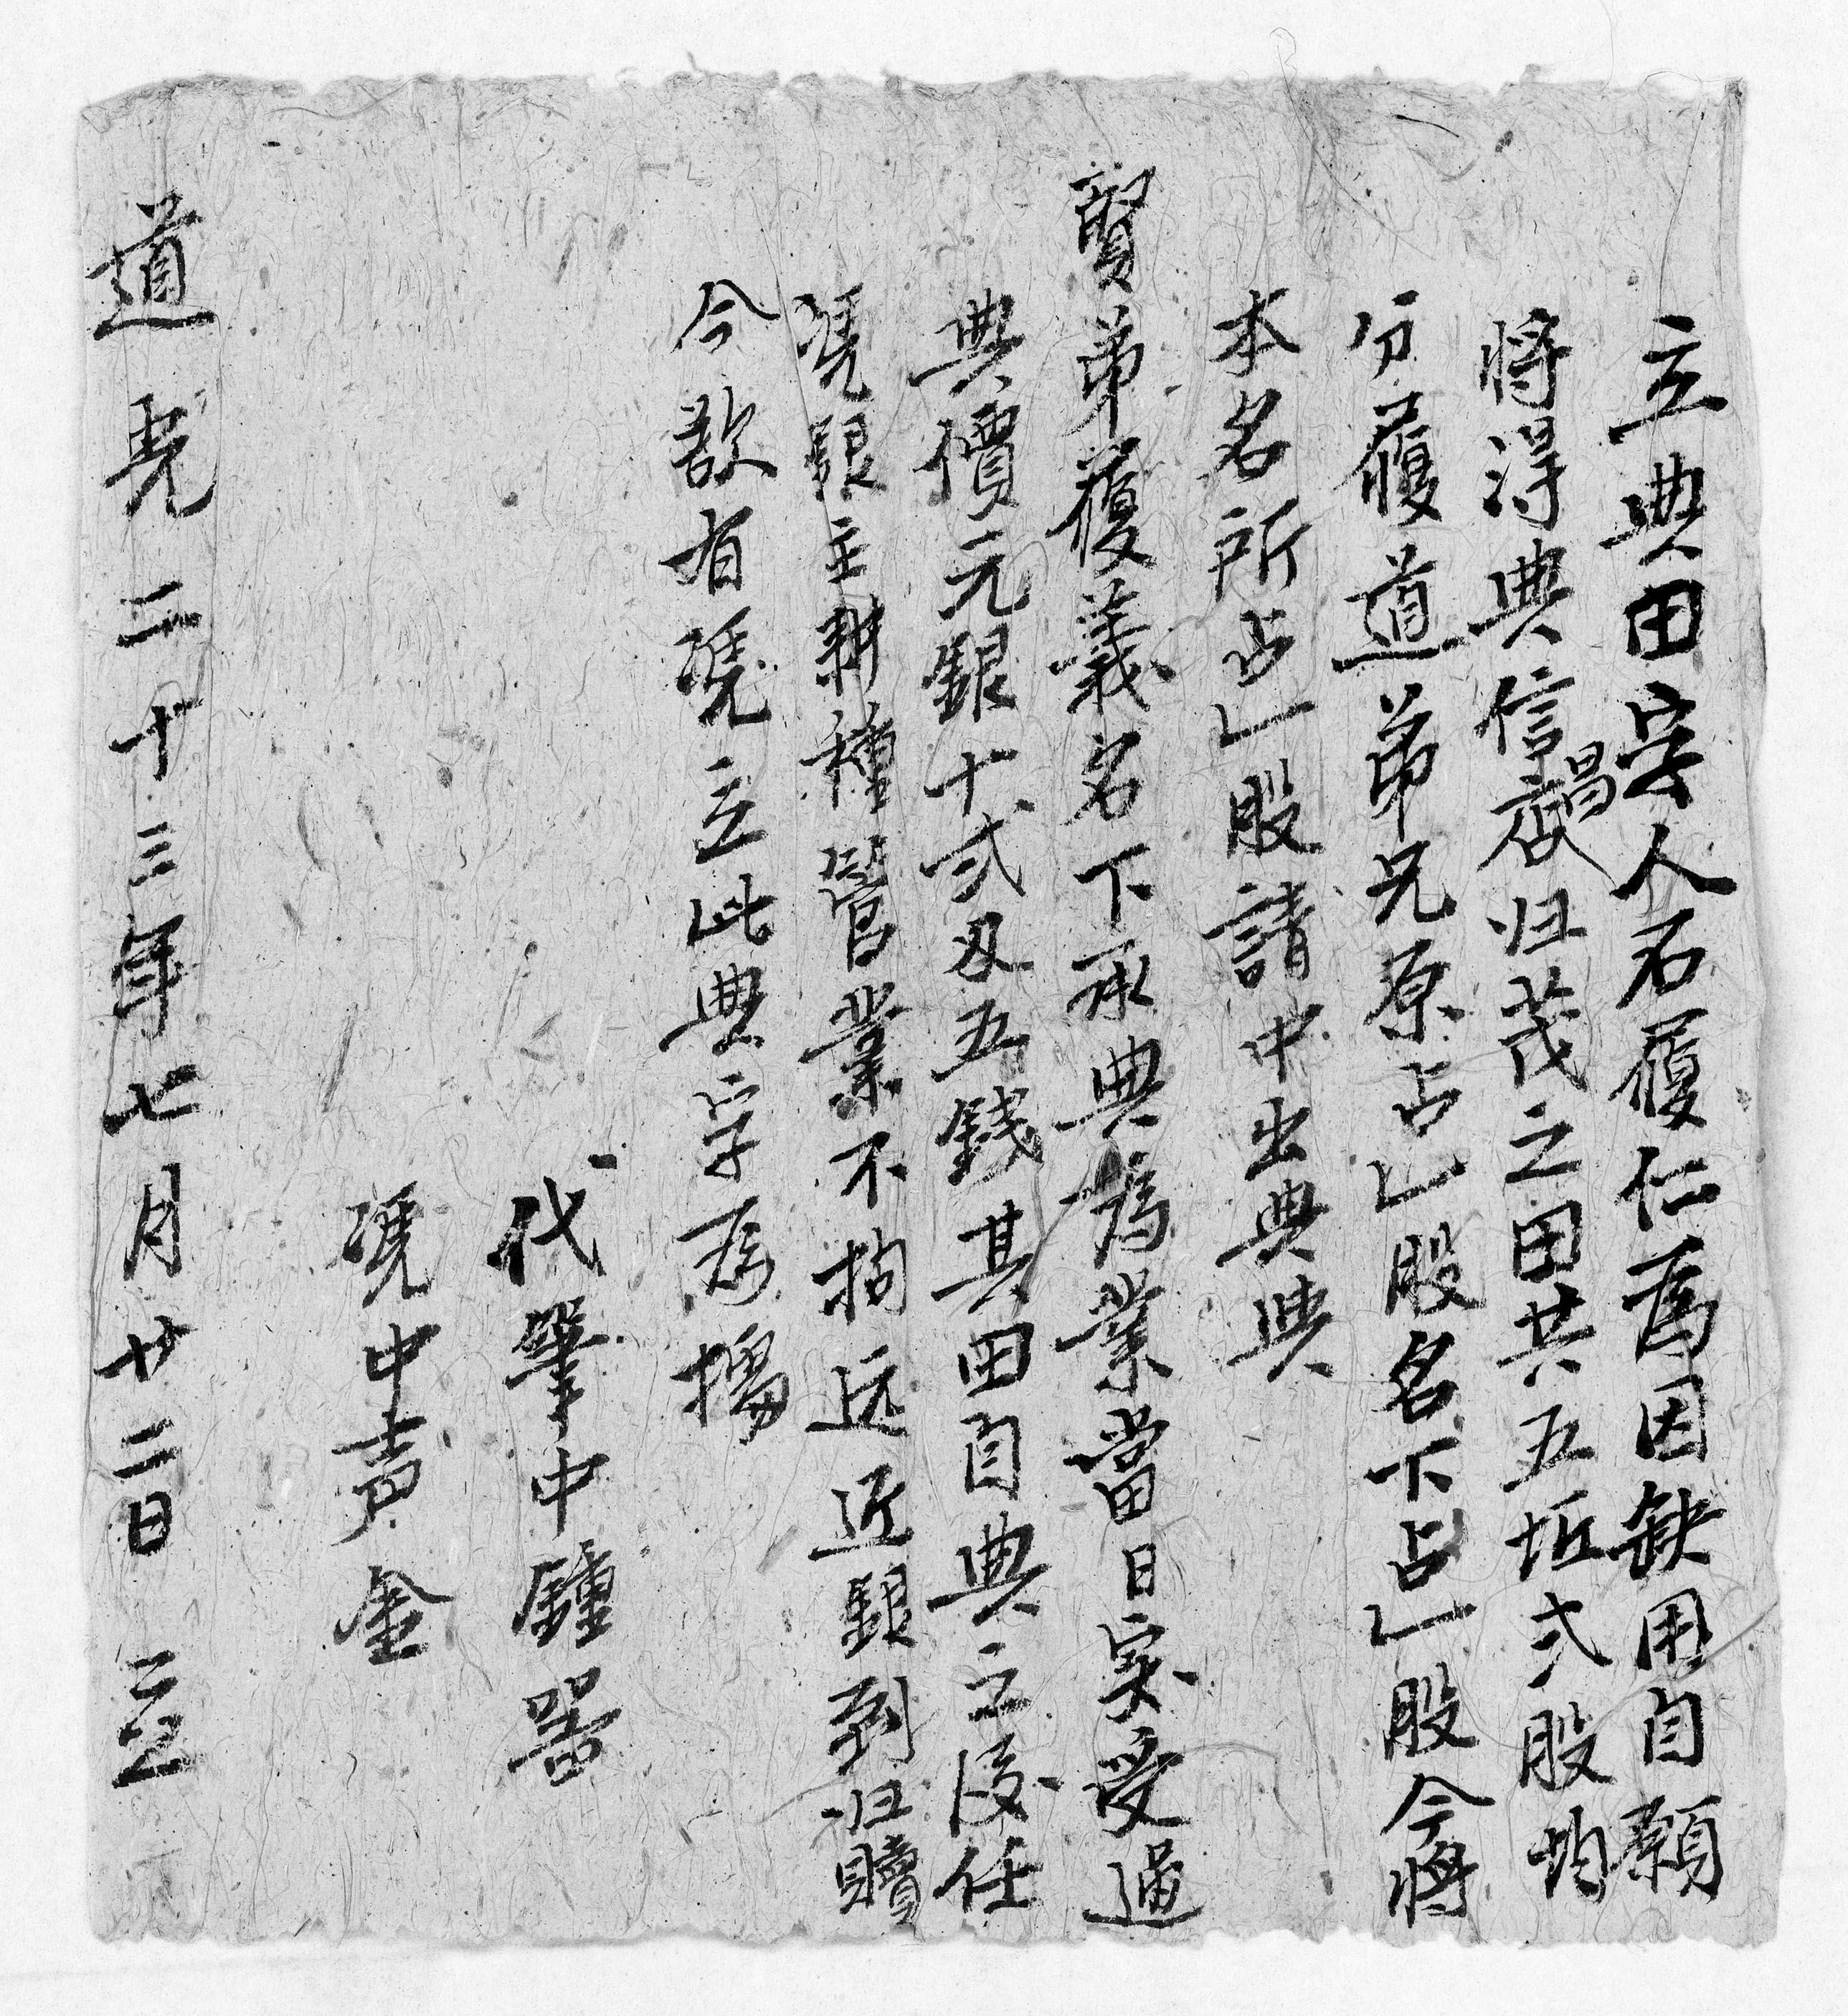 立典田字人石履仁為因缺用自願
將得典信昌衣归茂之田共五坵弍股均
分履道弟兄原占一股名下占一股今將
本名所占一股請中出典與
賢弟履義名下承典為業當日实受過
典價元銀十弍刄五錢其田自典之後任
凴銀主耕種管業不拘远近銀到归贖
今欲有凴立此典字为據
代筆中鍾器
凴中声金
道光二十三年七月廿二日 立